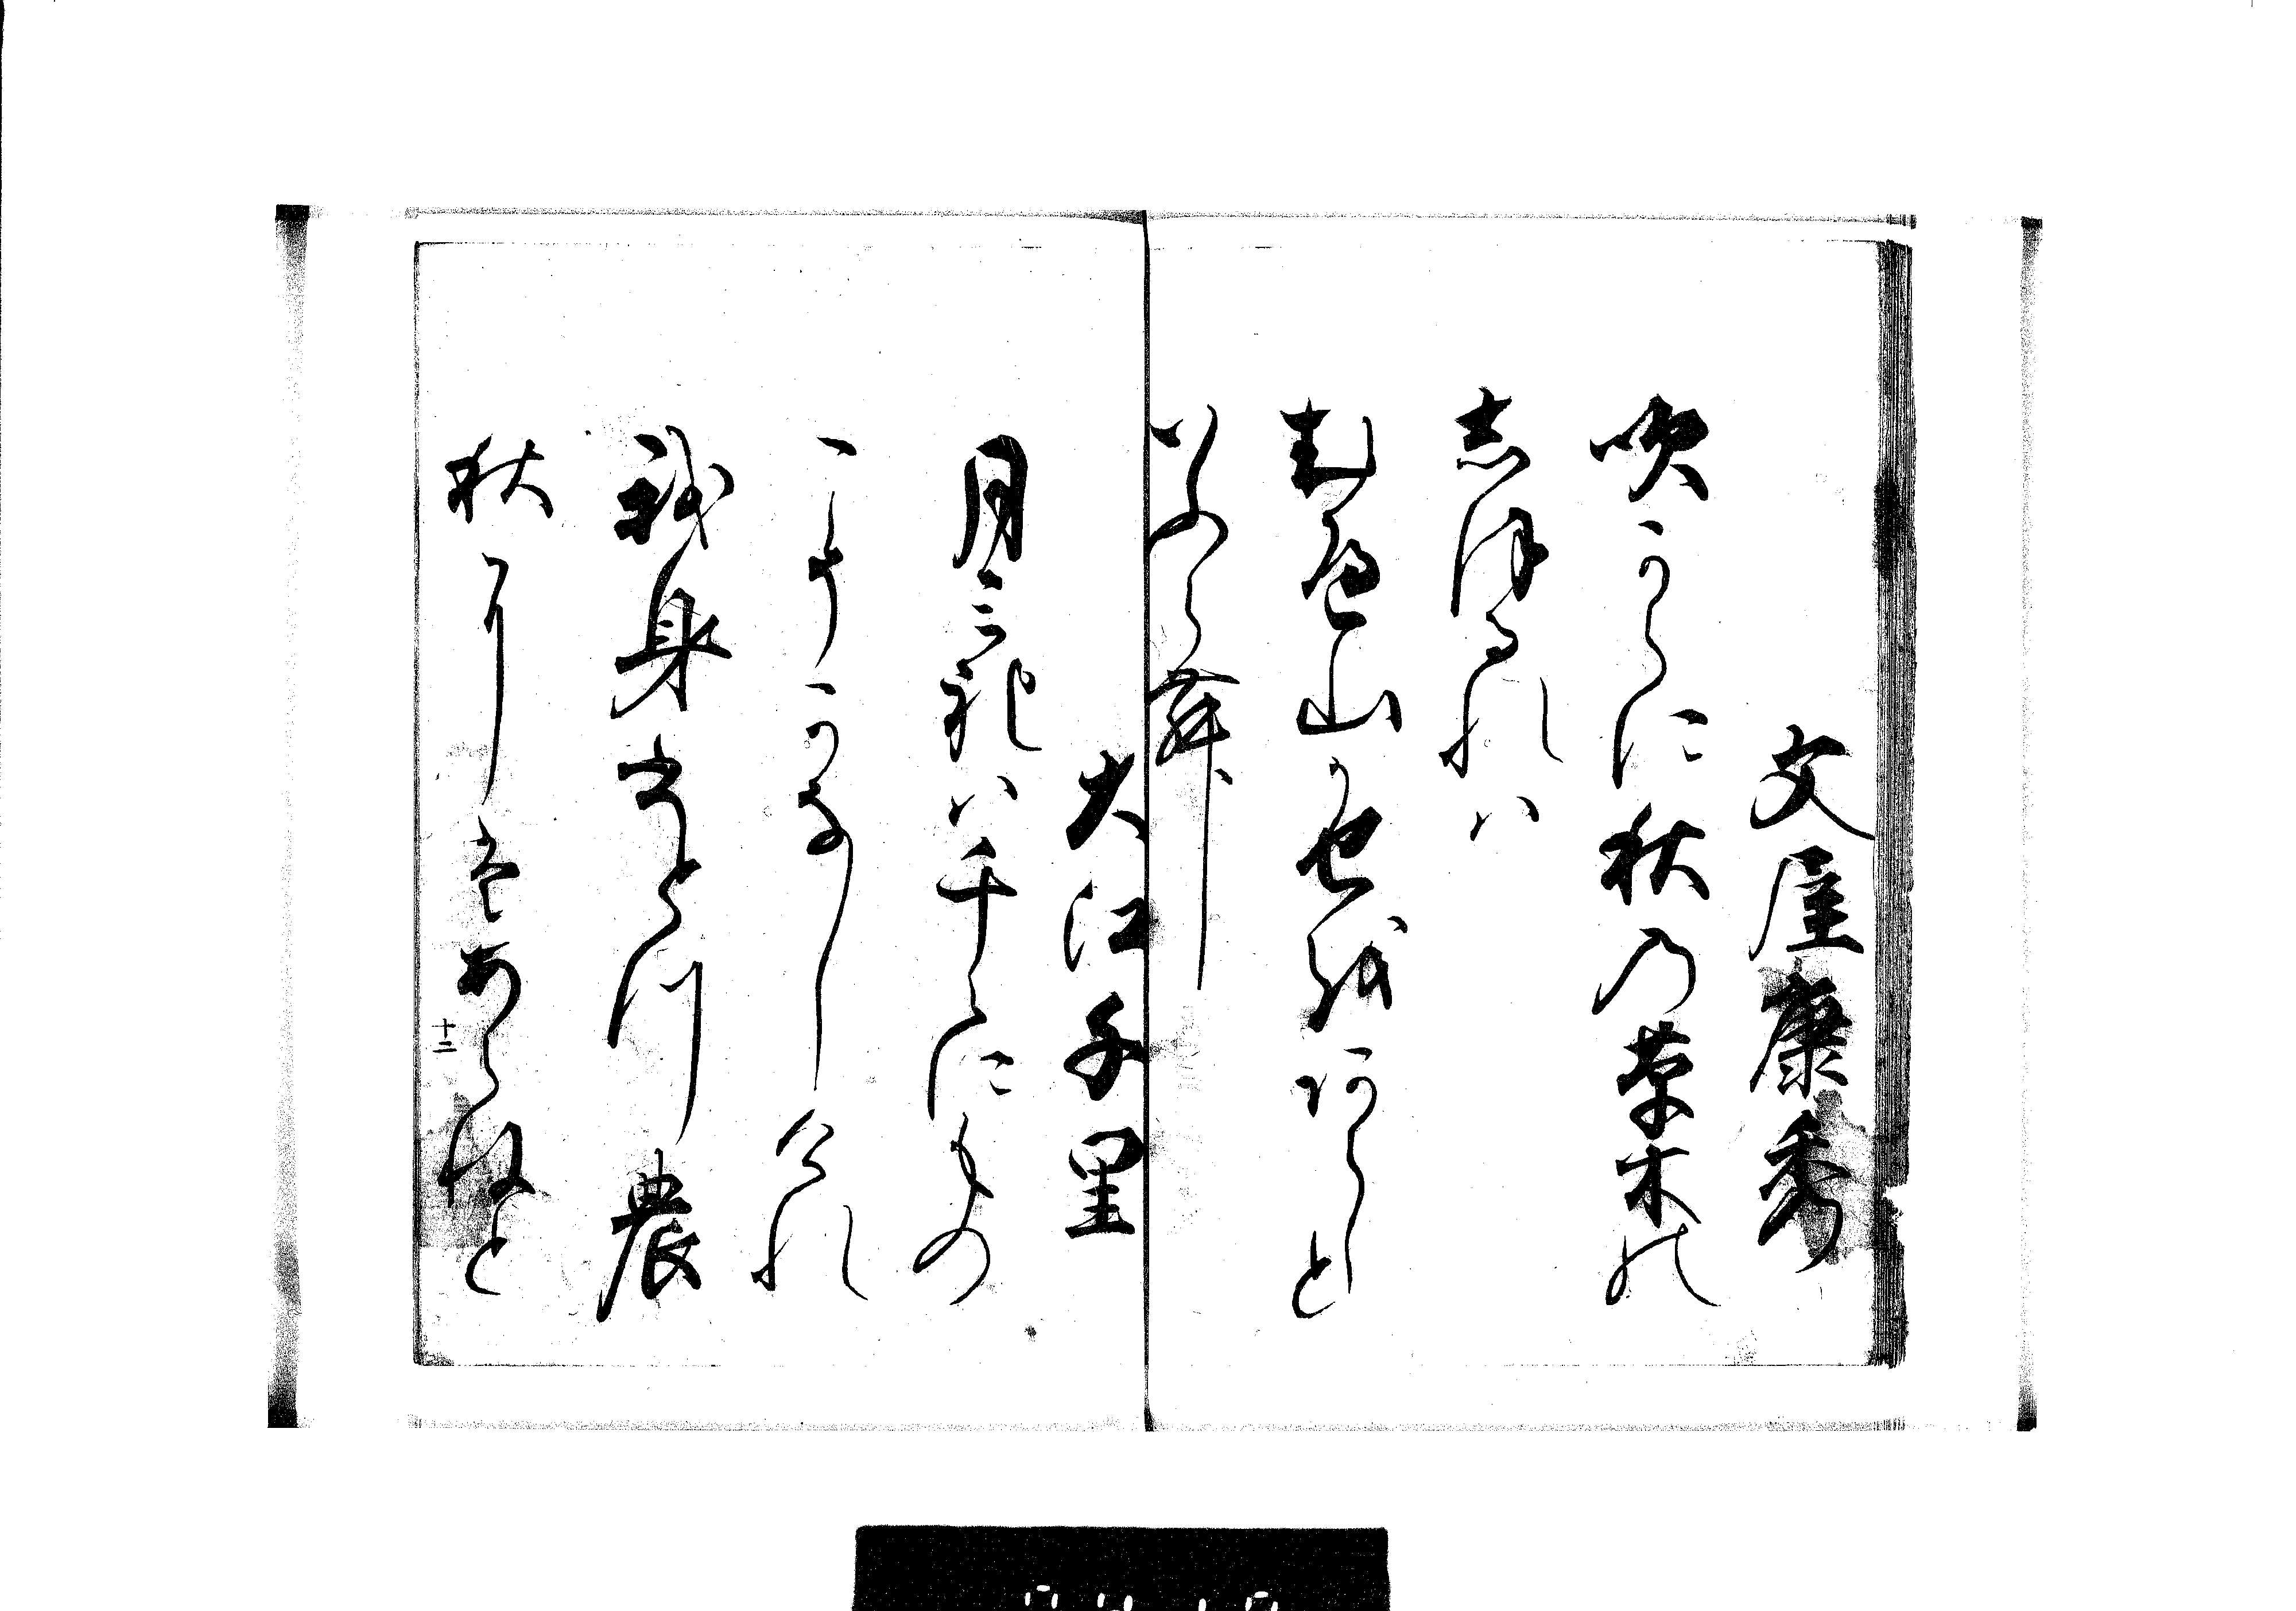 文屋康秀
吹からに秋乃草木の
志ほるれハ
むへ山かせをあらしと
いふらむ
大江千里
月みれハ千ゝにもの
こそかなしけれ
我身ひとつの
秋にはあらねと
十二